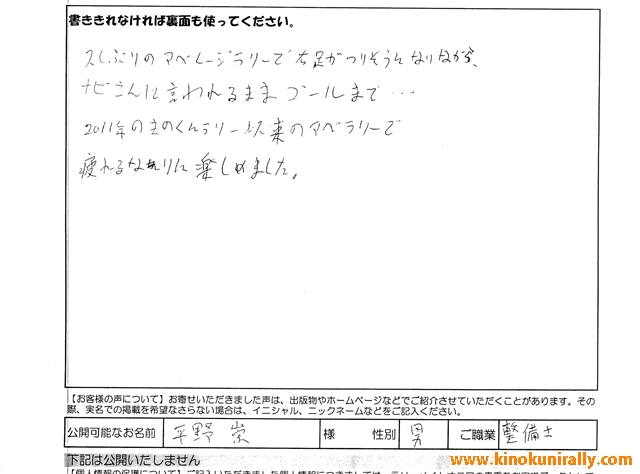 書ききれなければ裏面も使ってください。
久しぶりのアベレージラリーで右足がつりそうになりながら、
ナビさんに言われるままゴールまで…
2011年のきのくにラリー以来のアベラリーで
疲れるなりに楽しめました。
【お客様の声について】お寄せいただきました声は、出版物やホームページなどでご紹介させていただくことがあります。その
際、実名での掲載を希望なさらない場合は、イニシャル、ニックネームなどをご記入ください。
公開可能なお名前 平野 崇 様 性別 男 ご職業 整備士
下記は公開いたしません
www.kinokunirally.com